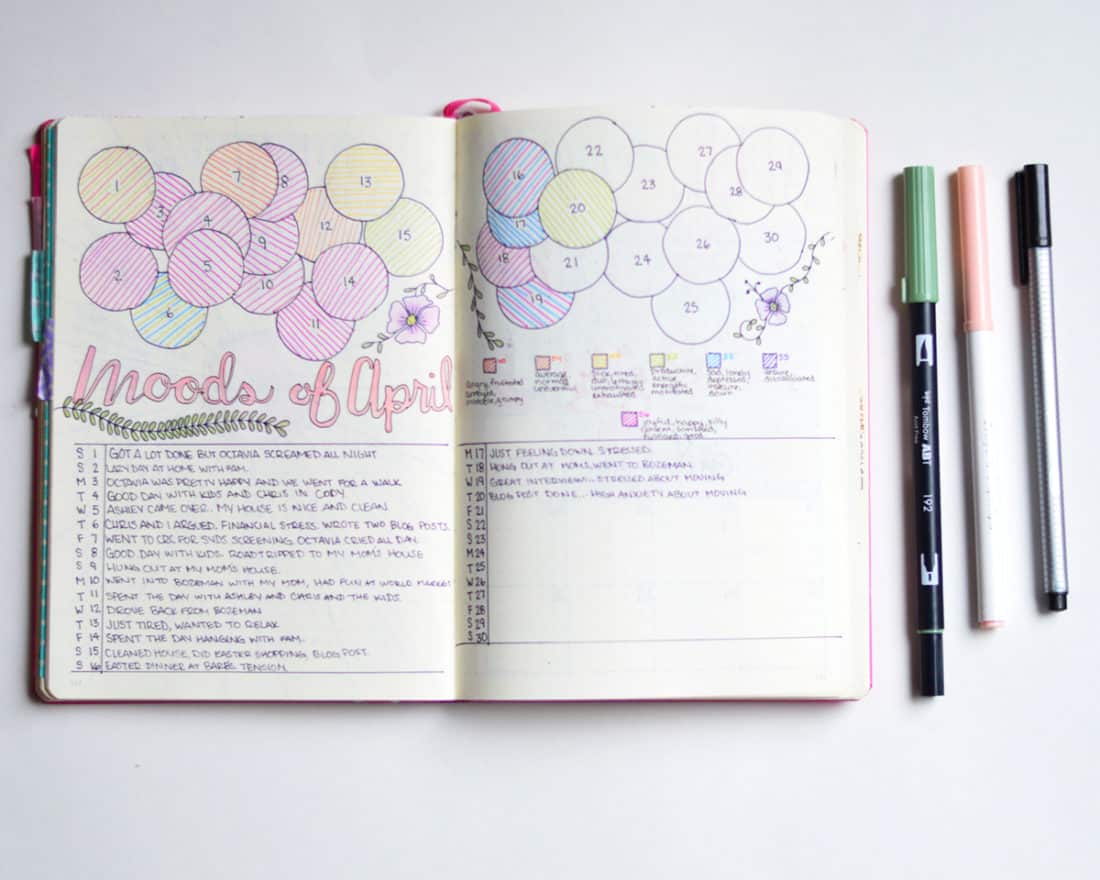 1
2
3
4
5
6
7
8
9
10
11
12
13
14
15
Moods of April
S 1 GOT A LOT DONE BUT OCTAVIA SCREAMED ALL NIGHT
S 2 LAZY DAY AT HOME WITH FAM.
M 3 OCTAVIA WAS PRETTY HAPPY AND WE WENT FOR A WALK
T 4 GOOD DAY WITH KIDS AND CHRIS IN CODY
W 5 ASHLEY CAME OVER. MY HOUSE IS NICE AND CLEAN
T 6 CHRIS AND I ARGUED. FINANCIAL STRESS. WROTE TWO BLOG POSTS.
F 7 WENT TO CRC FOR SVDS SCREENING. OCTAVIA CRIED ALL DAY.
S 8 GOOD DAY WITH KIDS. ROADTRIPPED TO MY MOM'S HOUSE
S 9 HUNG OUT AT MY MOM'S HOUSE.
M 10 WENT INTO BOZEMAN WITH MY MOM, HAD FUN AT WORLD MARKET
T 11 SPENT THE DAY WITH ASHLEY AND CHRIS AND THE KIDS.
W 12 DROVE BACK FROM BOZEMAN
T 13 JUST TIRED, WANTED TO RELAX
F 14 SPENT THE DAY HANGING WITH FAM.
S 15 CLEANED HOUSE, DID EASTER SHOPPING, BLOG POST.
S 16 EASTER DINNER AT BARB'S. TENSION
16
17
18
19
20
21
22
23
24
25
26
27
28
29
30
angry, frustrated
average,
normal
sick, tired,
dull, lethargic
unmotivated
exhausted
productive,
active
energetic
motivated
sad, lonely
depressed
down
joyful, happy, silly
content
M 17 JUST FEELING DOWN. STRESSED.
T 18 HUNG OUT AT MOMS, WENT TO BOZEMAN
W 19 GREAT INTERVIEW... STRESSED ABOUT MOVING
T 20 BLOG POST DONE... HIGH ANXIETY ABOUT MOVING
F 21
S 22
S 23
M 24
T 25
W 26
T 27
F 28
S 29
S 30
Tombow ABT
192